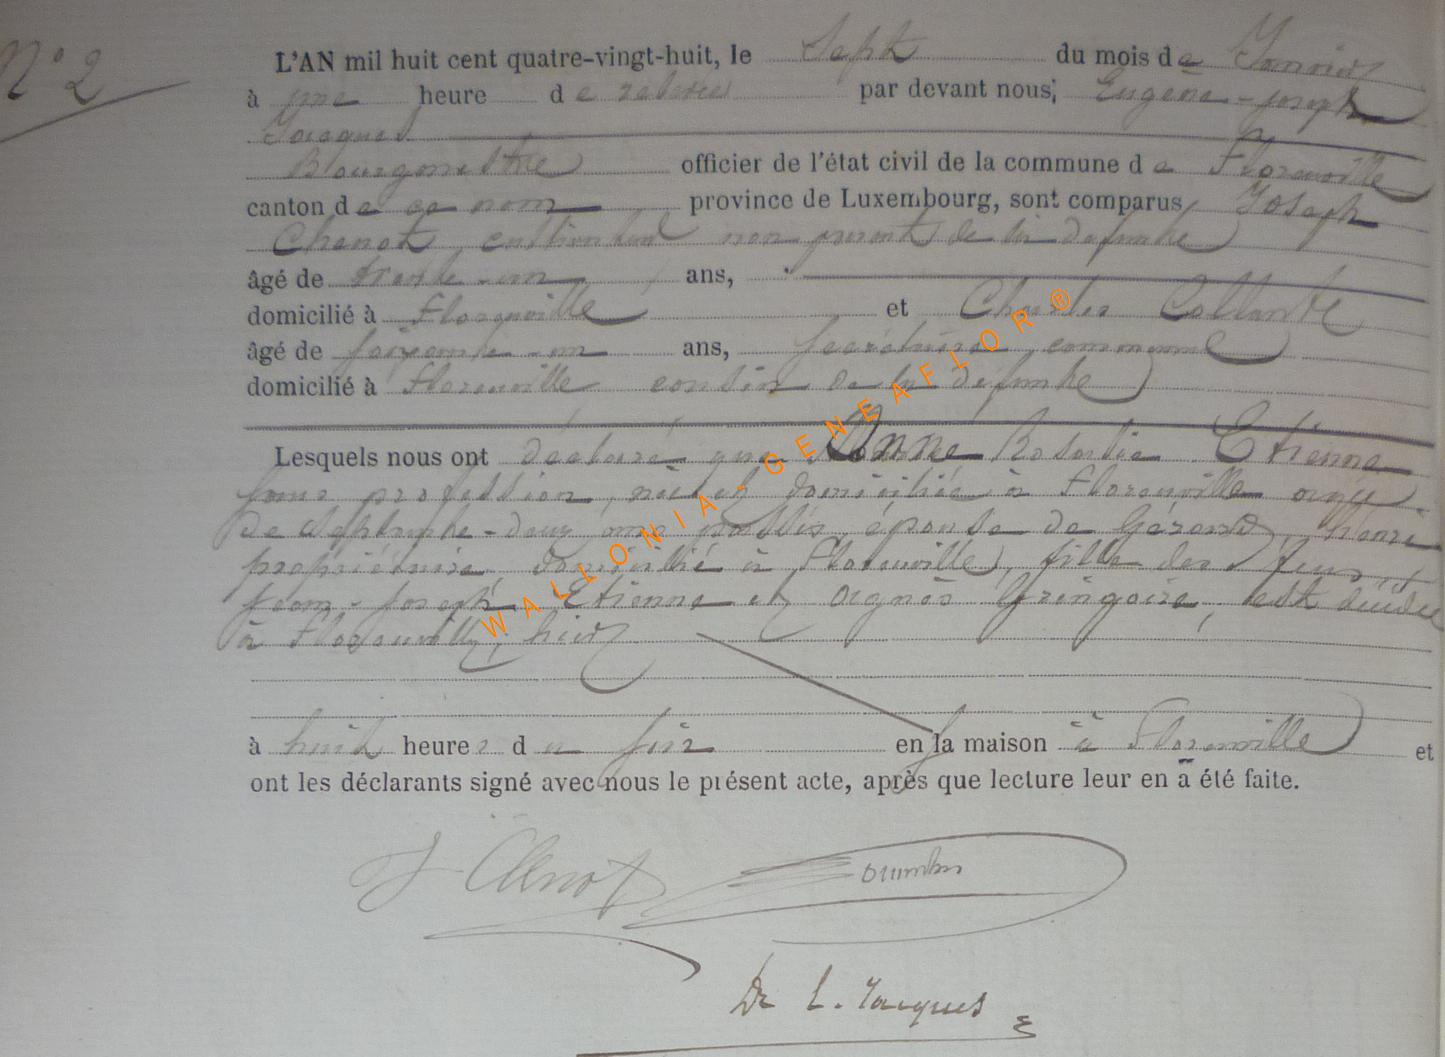 N° 2
L'AN mil huit cent quatre-vingt-huit, le Sept du mois de Janvier
à une heure de relevée par devant nous; Eugène-Joseph
Jacques
Bourgmestre officier de l'état civil de la commune de Florenville
canton de ce nom province de Luxembourg, sont comparus Joseph
Chenot, cultivateur non parent de la défunte
âgé de trente-un ans,
domicilié à Florenville et Charles
âgé de soixante-un ans, Secrétaire communal
domicilié à Florenville cousin de la défunte
Lesquels nous ont déclaré que Anne Rosalie Etienne
sans profession, née et domiciliée à Florenville agée
de septante-deux ans passés, épouse de Gérard, Henri
propriétaire, domicilié à Florenville, fille des feus
Jean-Joseph Etienne et Agnès Gringoire, est décédée
à Florenville, hier
à huit heures du soir en la maison à Florenville et
ont les déclarants signé avec nous le présent acte, après que lecture leur en a été faite.
J Chenot
Dr E. Jacques
WALLONIA-GENEAFLOR®